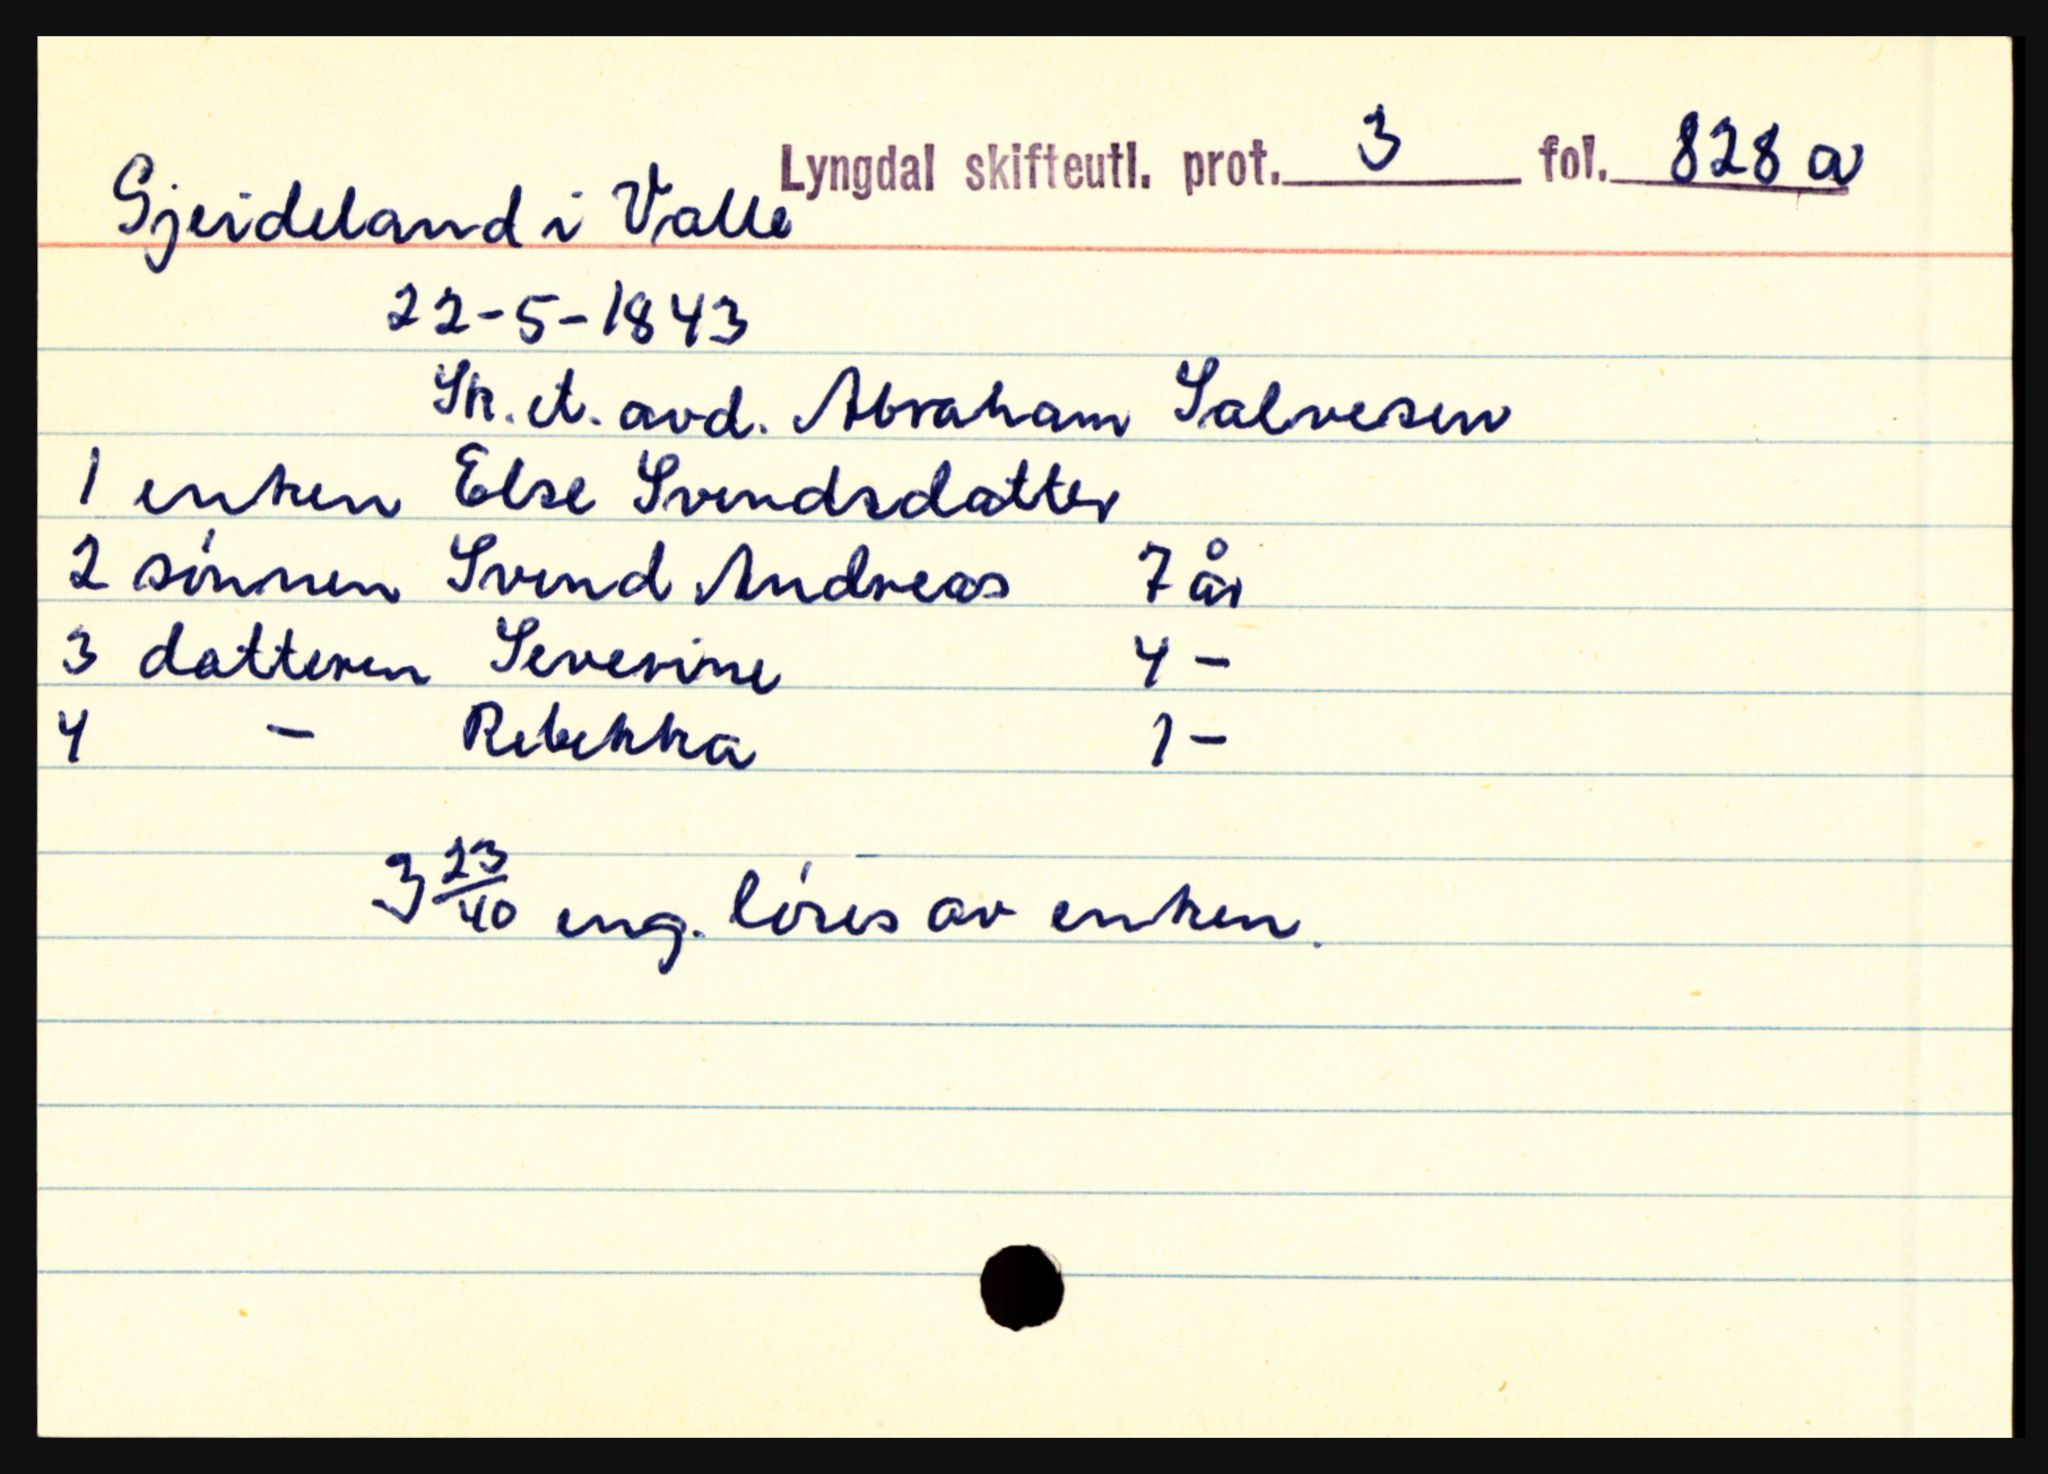 Lyngdal skifteutl. prot. 3 fol. 828 a
Gjeideland i Valle
22-5-1843
Sk. et. avd. Abraham Salvesen
1 enken Else Svendsdatter
2 sønnen Svend Andreas 7 år
3 datteren Severine 4 -
4 - Rebekka 1 -
3 23/40 eng. løses av enken.